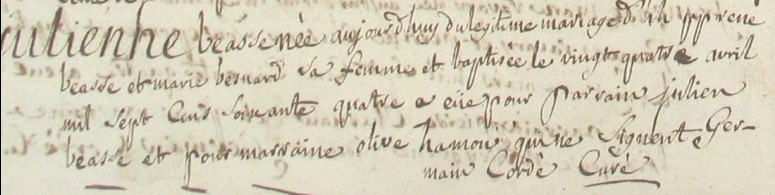 julienne beasse née aujourd'huy du legitime mariage d'
beasse et marie besnard sa femme et baptisée le vingt quatre avril
mil sept cens soixante quatre a eüe pour parrain julien
beasse et pour marraine olive hamon qui ne signent Ger-
main Cordé Curé